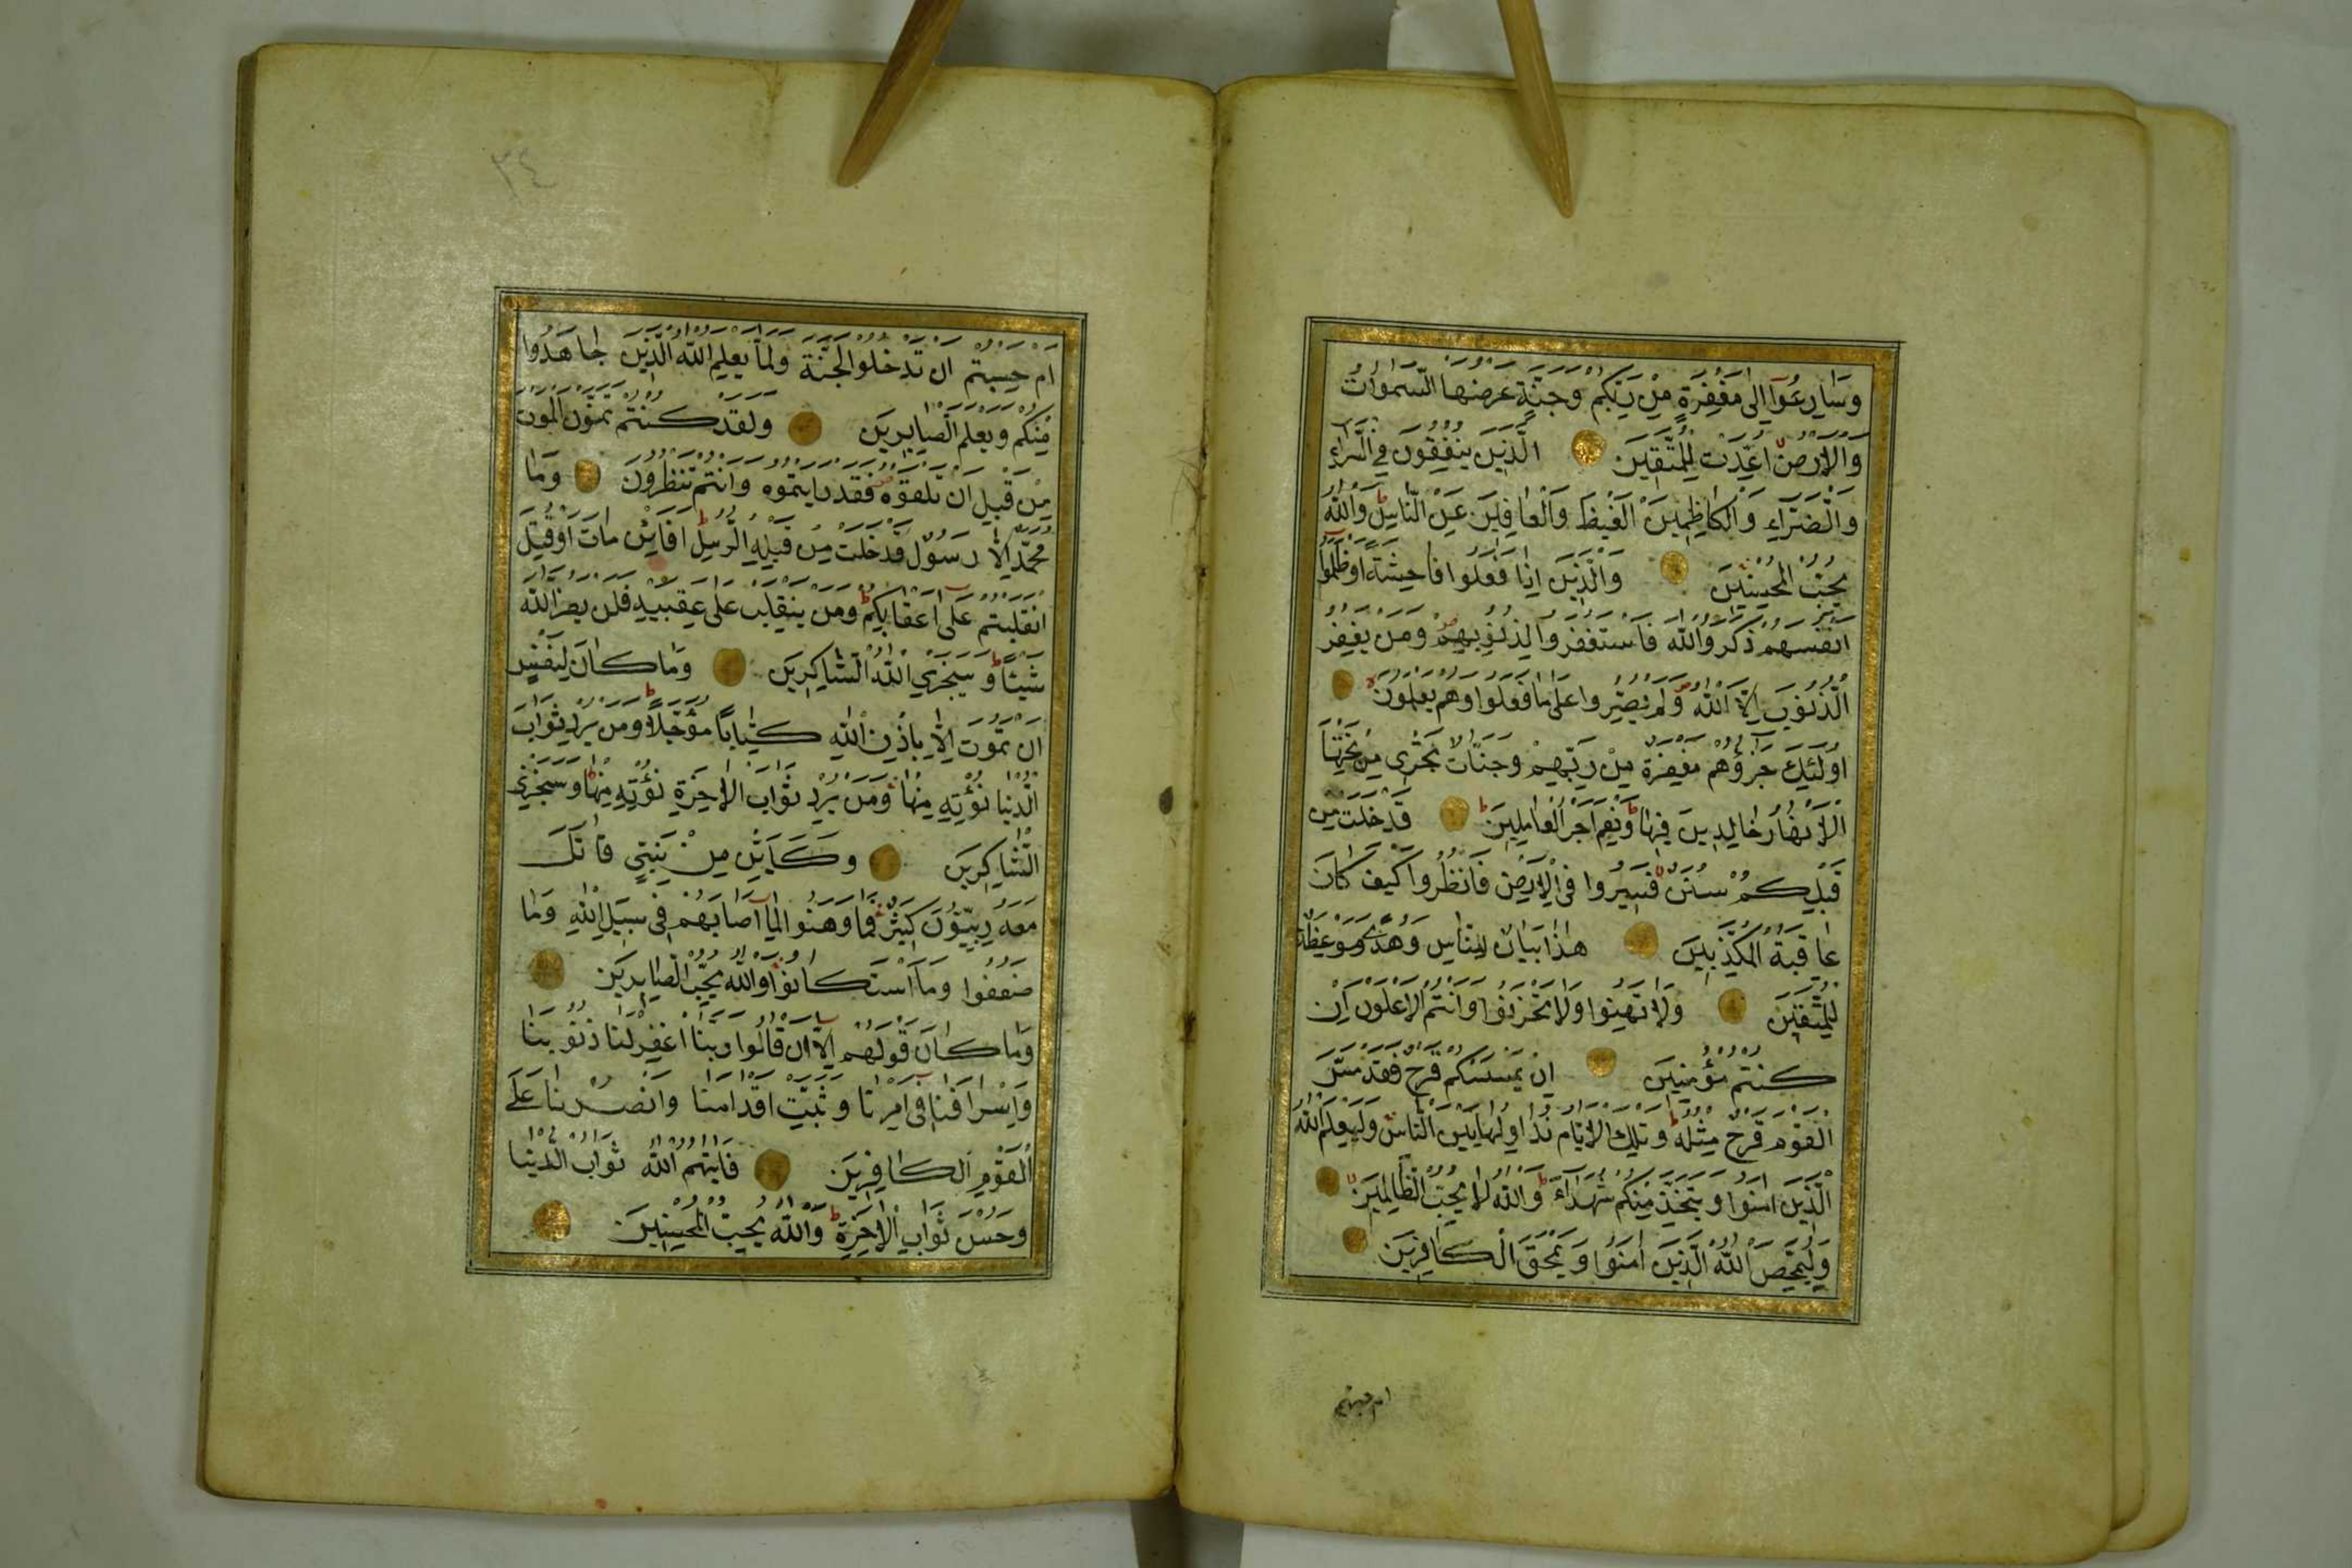 وَسَارِعُوآ اِلٰى مَغْفِرَةٍ مِنْ رَبِّكُمْ وَجَنَّةٍ عَرْضُهَا السَّمٰوَاتُ
وَالْاَرْضُ اُعِدَّتْ لِلْمُتَّقِينَ الَّذِينَ يُنْفِقُونَ فِي السَّرَّاءِ
وَالضَّرَّاءِ وَالْكَاظِمِينَ الْغَيْظَ وَالْعَافِينَ عَنِ النَّاسِ وَاللّٰهُ
يُحِبُّ الْمُحْسِنِينَ وَالَّذِينَ اِذَا فَعَلُوا فَاحِشَةً اَوْ ظَلَمُوآ
اَنْفُسَهُمْ ذَكَرُوا اللّٰهَ فَاسْتَغْفَرُوا لِذُنُوبِهِمْ وَمَنْ يَغْفِرُ
الذُّنُوبَ اِلَّا اللّٰهُ وَلَمْ يُصِرُّوا عَلٰى مَا فَعَلُوا وَهُمْ يَعْلَمُونَ
اُولٰئِكَ جَزَآؤُهُمْ مَغْفِرَةٌ مِنْ رَبِّهِمْ وَجَنَّاتٌ تَجْرِي مِنْ تَحْتِهَا
الْاَنْهَارُ خَالِدِينَ فِيهَا وَنِعْمَ اَجْرُ الْعَامِلِينَ قَدْ خَلَتْ مِنْ
قَبْلِكُمْ سُنَنٌ فَسِيرُوا فِي الْاَرْضِ فَانْظُرُوا كَيْفَ كَانَ
عَاقِبَةُ الْمُكَذِّبِينَ هٰذَا بَيَانٌ لِلنَّاسِ وَهُدًى وَمَوْعِظَةٌ
لِلْمُتَّقِينَ وَلَا تَهِنُوا وَلَا تَحْزَنُوا وَاَنْتُمُ الْاَعْلَوْنَ اِنْ
كُنْتُمْ مُؤْمِنِينَ اِنْ يَمْسَسْكُمْ قَرْحٌ فَقَدْ مَسَّ
الْقَوْمَ قَرْحٌ مِثْلُهُ وَتِلْكَ الْاَيَّامُ نُدَاوِلُهَا بَيْنَ النَّاسِ وَلِيَعْلَمَ اللّٰهُ
الَّذِينَ اٰمَنُوا وَيَتَّخِذَ مِنْكُمْ شُهَدَآءَ وَاللّٰهُ لَا يُحِبُّ الظَّالِمِينَ
وَلِيُمَحِّصَ اللّٰهُ الَّذِينَ اٰمَنُوا وَيَمْحَقَ الْكَافِرِينَ
ام حسبتم
٣٤
اَمْ حَسِبْتُمْ اَنْ تَدْخُلُوا الْجَنَّةَ وَلَمَّا يَعْلَمِ اللّٰهُ الَّذِينَ جَاهَدُوا
مِنْكُمْ وَيَعْلَمَ الصَّابِرِينَ وَلَقَدْ كُنْتُمْ تَمَنَّوْنَ الْمَوْتَ
مِنْ قَبْلِ اَنْ تَلْقَوْهُ فَقَدْ رَاَيْتُمُوهُ وَاَنْتُمْ تَنْظُرُونَ وَمَا
مُحَمَّدٌ اِلَّا رَسُولٌ قَدْ خَلَتْ مِنْ قَبْلِهِ الرُّسُلُ اَفَائِنْ مَاتَ اَوْ قُتِلَ
انْقَلَبْتُمْ عَلٰى اَعْقَابِكُمْ وَمَنْ يَنْقَلِبْ عَلٰى عَقِبَيْهِ فَلَنْ يَضُرَّ اللّٰهَ
شَيْئًا وَسَيَجْزِي اللّٰهُ الشَّاكِرِينَ وَمَا كَانَ لِنَفْسٍ
اَنْ تَمُوتَ اِلَّا بِاِذْنِ اللّٰهِ كِتَابًا مُؤَجَّلًا وَمَنْ يُرِدْ ثَوَابَ
الدُّنْيَا نُؤْتِهِ مِنْهَا وَمَنْ يُرِدْ ثَوَابَ الْاٰخِرَةِ نُؤْتِهِ مِنْهَا وَسَنَجْزِي
الشَّاكِرِينَ وَكَاَيِّنْ مِنْ نَبِيٍّ قَاتَلَ
مَعَهُ رِبِّيُّونَ كَثِيرٌ فَمَا وَهَنُوا لِمَآ اَصَابَهُمْ فِي سَبِيلِ اللّٰهِ وَمَا
ضَعُفُوا وَمَا اسْتَكَانُوا وَاللّٰهُ يُحِبُّ الصَّابِرِينَ
وَمَا كَانَ قَوْلَهُمْ اِلَّآ اَنْ قَالُوا رَبَّنَا اغْفِرْ لَنَا ذُنُوبَنَا
وَاِسْرَافَنَا فِي اَمْرِنَا وَثَبِّتْ اَقْدَامَنَا وَانْصُرْنَا عَلَى
الْقَوْمِ الْكَافِرِينَ فَاٰتٰيهُمُ اللّٰهُ ثَوَابَ الدُّنْيَا
وَحُسْنَ ثَوَابِ الْاٰخِرَةِ وَاللّٰهُ يُحِبُّ الْمُحْسِنِينَ